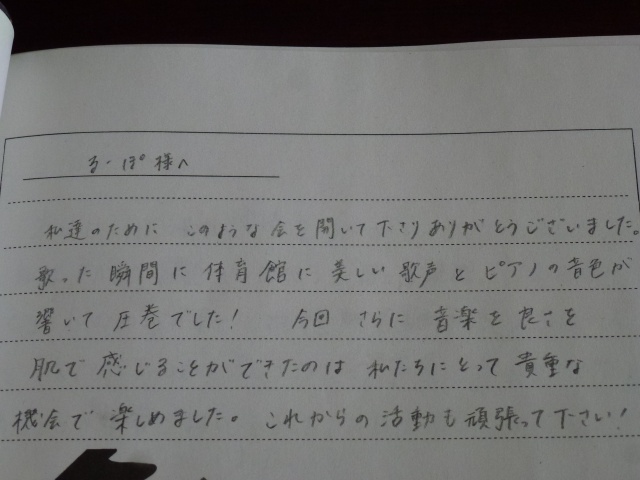 る・ぽ様へ
私達のために このような会を開いて下さりありがとうございました。
歌った瞬間に体育館に美しい歌声とピアノの音色が
響いて圧巻でした! 今回 さらに 音楽を良さを
肌で感じることができたのは 私たちにとって貴重な
機会で楽しめました。これからの活動も頑張って下さい!